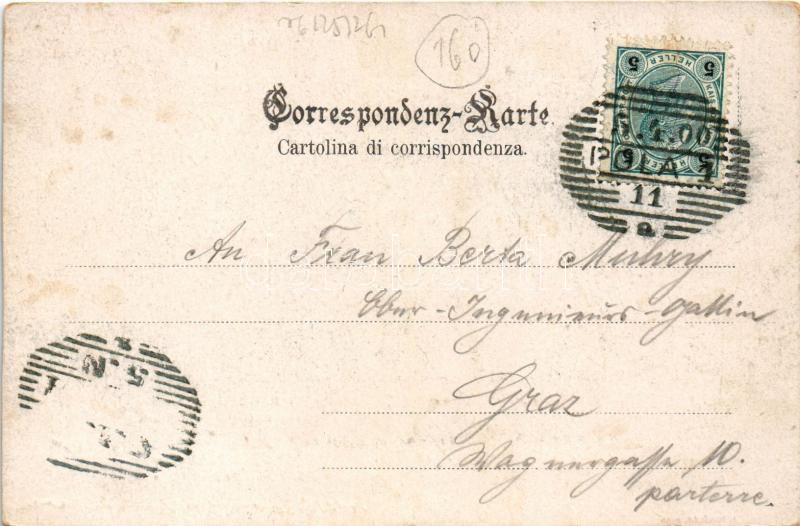 160
5 HELLER 5
Correspondenz-Karte
Cartolina di corrispondenza.
.4.00
POLA 1
11
An Frau Berta Muhry
Ober-Ingenieurs-gattin
Graz
Wagnergasse 10.
parterre.
5 5